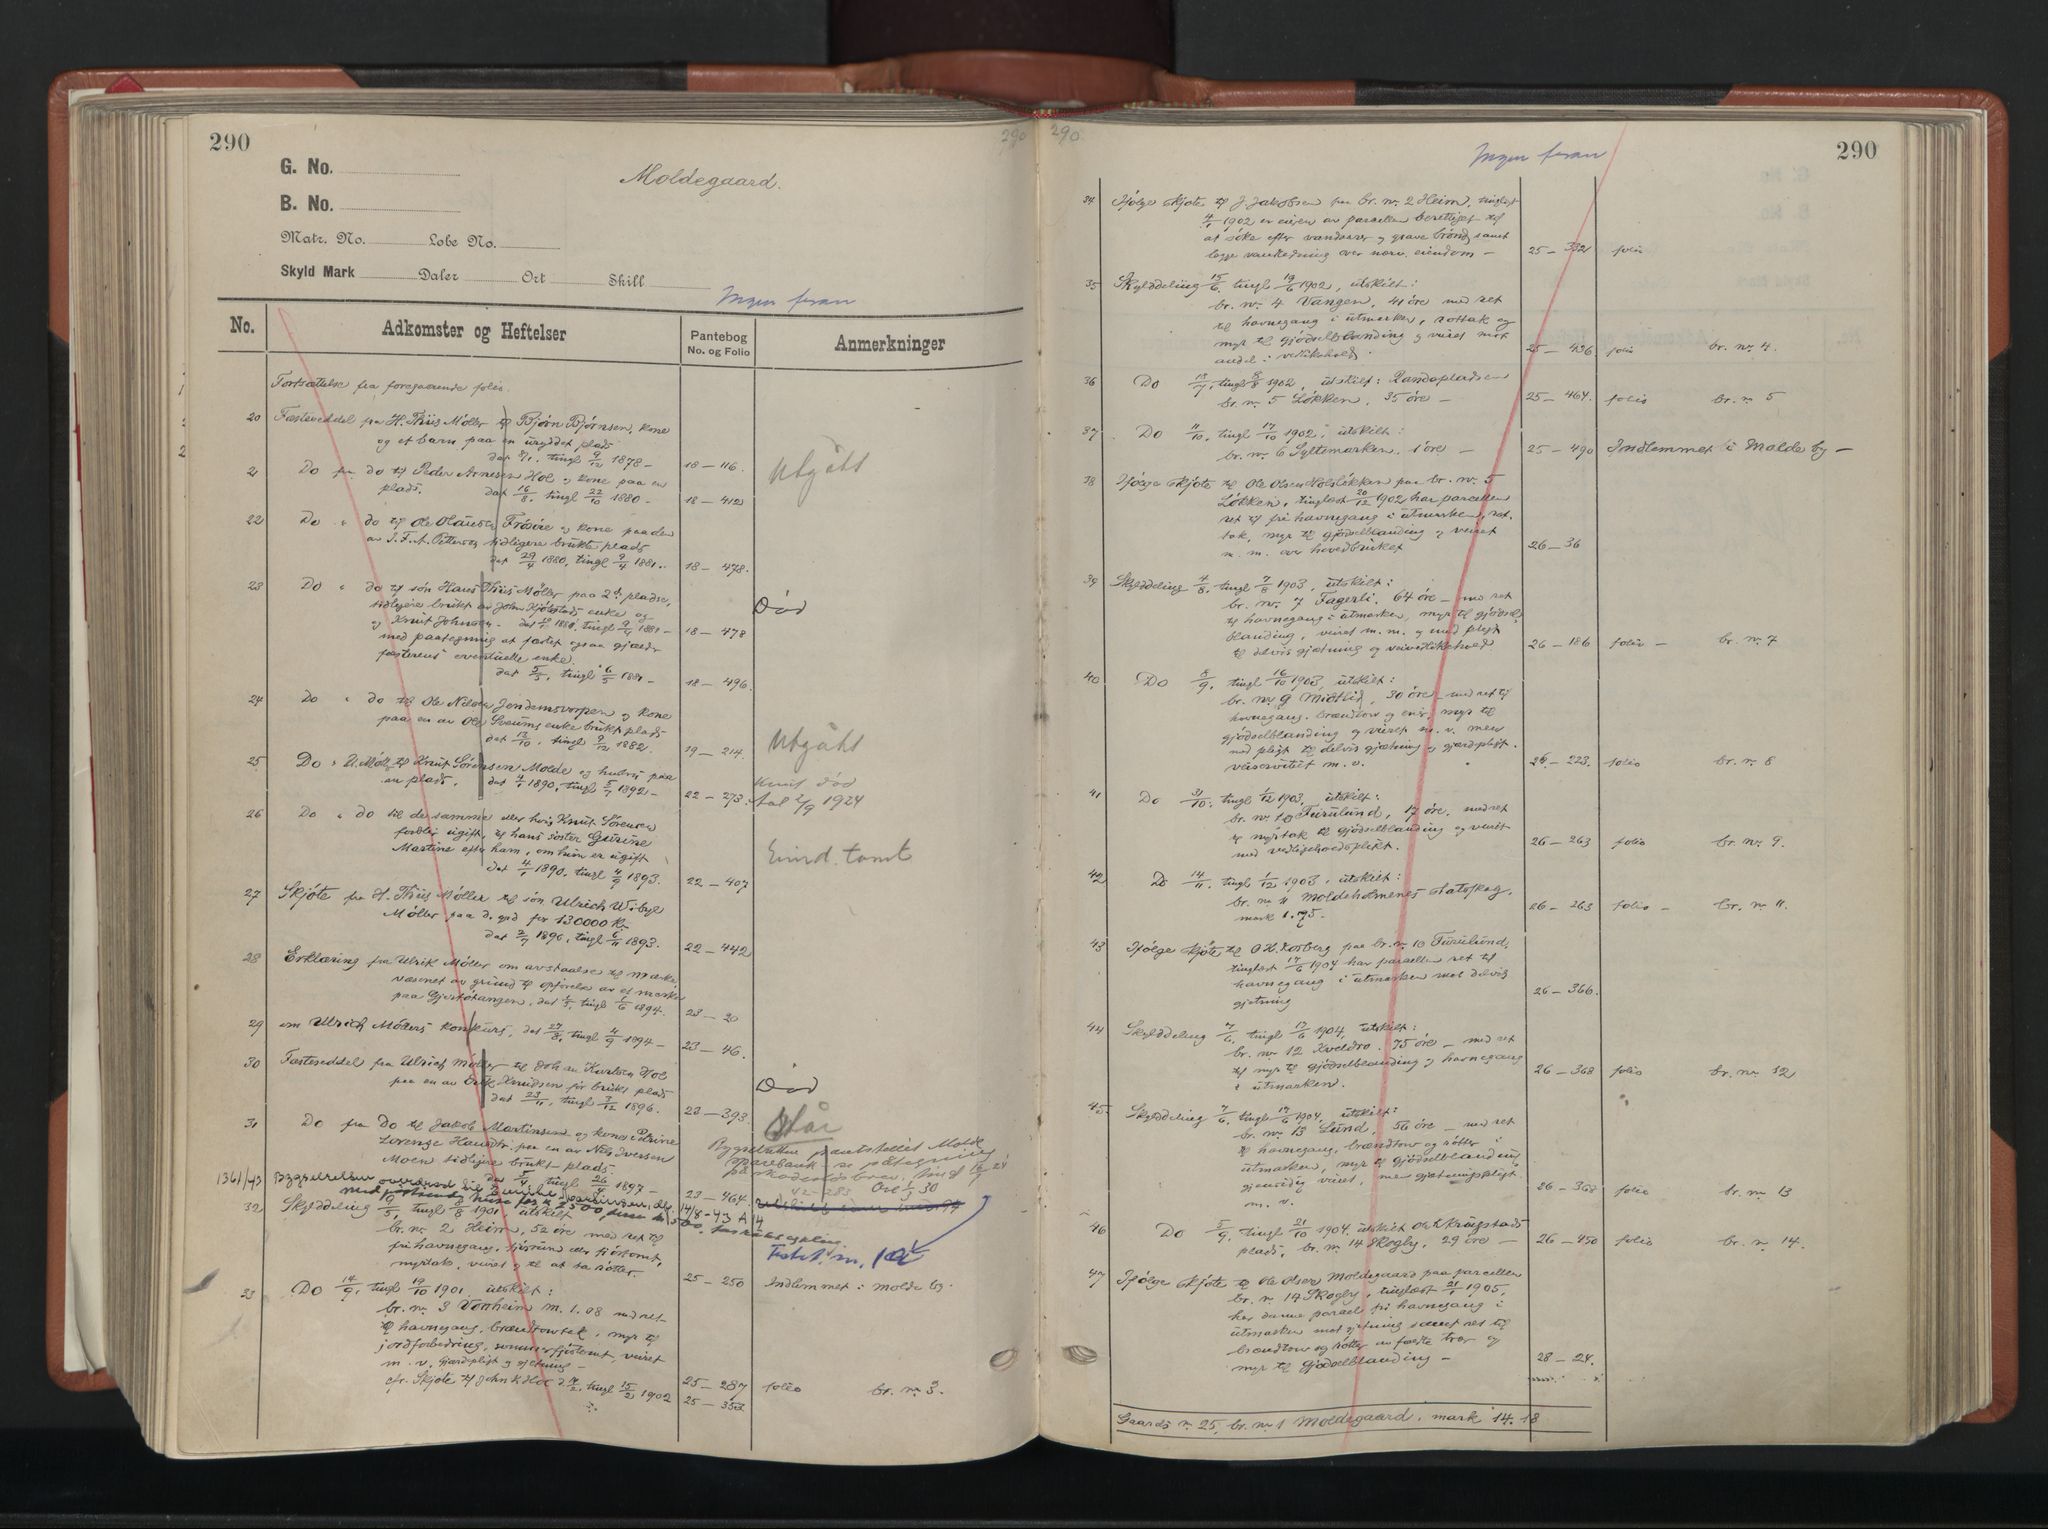 290
290
G. No.
Moldegaard.
B. No.
Matr. No. Løbe No.
Skyld Mark Daler Ort Skill
Ingen foran
No. Adkomster og Heftelser Pantebog No. og Folio Anmerkninger
Fortsættelse fra foregaaende folio.
20 Fæsteseddel fra H. Thiis Møller til Bjørn Bjørnsen, kone
og et barn paa en uryddet plads
dat tingl 9/12 1878 – 18 – 116. Utgått
21 Do fra do til Peder Arnesen Hol og kone paa en
plads. dat 16/8, tingl 22/10 1880 – 18 – 412
22 Do " do til Ole Olausen Frøsøe og kone paa den
av J. F. A. Petterson tidligere brukte plads
dat 29/4 1880, tingl 9/4 1881. – 18 – 478.
23 Do " do til søn Hans Thiis Møller paa 2de pladse,
tidligere brukt av John Kjølstads enke og
og Knut Johnsen – tingl 9/4 1881 – 18 – 478 Død
med paategning at fæstet ogsaa gjælder
fæsterens eventuelle enke.
dat 5/5, tingl 6/5 1881 – 18 – 496.
24 Do " do til Ole Nilsen Jendemsvorpen og kone
paa en av Ole Sveums enke brukt plads
dat 13/10, tingl 9/12 1882. 19 – 214. Utgått
25 Do " U. Møll. til Knut Sørensen Molde og hustru paa
en plads. dat 4/1 1890, tingl 5/7 1892 – 22 – 273. Knut død
2/9 1924
26 Do " do til de samme eller hvis Knut Sørensen
forblir ugift, til hans søster Gurine
Martine efter ham, om hun er ugift
dat 4/1 1890. tingl 4/9 1893. 22 – 407
27 Skjøte fra H. Thiis Møller til søn Ulrich Wibye
Møller paa d. grd for 130000 Kr.
dat 2/7 1890, tingl 6/11 1893. 22 – 442
28 Erklæring fra Ulrik Møller om avstaaelse til mærke
væsenet av grund til opførelse av et merke
paa Gjerstøtangen, dat 1/5, tingl 1/6 1894. 23 – 20
29 om Ulrich Møllers konkurs, dat 27/8, tingl 4/9 1894 – 23 – 46.
30 Fæsteseddel fra Ulrich Møller til Johan Karlsen Hol
paa en av Erik Knudsen før brukt plads
dat 23/11, tingl 3/12 1896. 23 – 393 Død
31 Do fra Do til Jakob Martinsen og kone Petrine
Lorense Hansdtr. paa en av Nils Iversen
Moen tidligere brukt plads.
dat 5/4 tingl 26/4 1897 – 23 – 464. Står
Byggselretten pantstellet Molde
sparebank – se påtegning
på skadesløsbrev, tingl
42 – 283
1361/43 Byggselretten overdrad til
14/8-43 A 14
32 Skylddeling 9/5, tingl 8/8 1901 utskilt
br. nr. 2 Heim, 52 øre med ret til
fri havnegang,
myrtak, veiret og til at ta røtter. 25 – 250 Indlemmet i molde by.
33 Do 14/9, tingl 19/10 1901. utskilt:
br. nr. 3 Vonheim m. 1.08 med ret
til havnegang, brændtorvtak, myr til
jordforbedring, sommerfjøstomt, veiret
m. v. gjærdepligt og gjetning – 25 – 287 folio br. nr. 3.
cfr. Skjøte til John K Hol d. tingl 15/2 1902 25 – 353
290
290
Ingen foran
34 Ifølge skjøte til J. Jakobsen paa br. nr. 2 Heim, tinglyst
4/1 1902 er eieren av parcellen berettiget til
at søke efter vandaarer og grave brønd samt
lægge vandledning over nærv. eiendom – 25 – 332 folio
35 Skylddeling 15/6, tingl 19/6 1902, utskilt:
br. nr. 4 Vangen, 41 øre med ret
til havnegang i utmarken, rottak og
myr til gjødselblanding og veiret mot
andel i vedlikehold. 25 – 436 folio br. nr. 4.
36 Do 18/7, tingl 8/8 1902, utskilt: Randapladsen
br. nr. 5 Løkken, 35 øre – 25 – 464. folio br. nr. 5
37 Do 11/10, tingl 17/10 1902, utskilt:
br. nr. 6 Gyltemarken, 1 øre – 25 – 490 Indlemmet i Molde by –
38 Ifølge skjøte til Ole Olsen Holsløkken paa br. nr. 5
Løkken, tinglæst 20/12 1902 har parcellen
ret til fri havnegang i utmarken, rot-
tak, myr til gjødselblanding og veiret
m. m. over hovedbruket 26 – 36
39 Skylddeling 4/8, tingl 7/8 1903, utskilt:
br. nr. 7 Fagerli. 64 øre – med ret
til havnegang i utmarken, myr til gjødsel-
blanding, veiret m. m. og med pligt
til delvis gjætning og veivedlikehold. 26 – 186 folio – br. nr. 7
40 Do 5/9, tingl 16/10 1903, utskilt:
br. nr. 9 Midtlid, 30 øre – med ret til
havnegang. brændtorv og myr til
gjødselblanding og veiret m. v. men
med pligt til delvis gjætning og gjærdepligt.
m. v. 26 – 223. folio br. nr. 8
41 Do 31/10, tingl 1/12 1903, utskilt:
br. nr. 10 Furulund, 17 øre. med ret
til myrtak til gjødselblanding og veiret
med vedligeholdspligt. 26 – 263 folio br. nr. 9.
42 Do 14/11, tingl 1/12 1903, utskilt:
br. nr. 11 Moldeholmenes statsskog.
mark 1.75. 26 – 263 folio – br. nr. 11.
43 Ifølge skjøte til O. H. Korberg paa br. nr. 10 Furulund,
tinglæst 17/6 1904 har parcellen ret til
havnegang i utmarken mot delvis
gjetning 26 – 366.
44 Skylddeling 7/6, tingl 17/6 1904, utskilt:
br. nr. 12 Kveldro. 75 øre – med ret
til myr til gjødselblanding og havnegang
i utmarken. 26 – 368 folio br. nr. 12
45 Skylddeling 7/6, tingl 17/6 1904, utskilt:
br. nr. 13 Lund, 56 øre – med ret
til havnegang, brændtorv og røtter i
utmarken, myr til gjødselblanding,
gjensidig veiret, med gjetningspligt.
m. v. 26 – 368 folio br. nr. 13
46 Do 5/9, tingl 21/10 1904. utskilt Ole Kringstads
plads, br. nr. 14 Skogly, 29 øre – 26 – 450 folio br. nr. 14.
47 Ifølge skjøte til Ole Olsen Moldegaard paa parcellen
br. nr. 14 Skogly, tinglæst 21/1 1905,
har denne parcel fri havnegang i
utmarken mot gjetning samt ret til
brændtorv og røtter av fældte trær og
myr til gjødselblanding – 28 – 24.
Gaards nr. 25, br. nr. 1 Moldegaard, mark 14.18